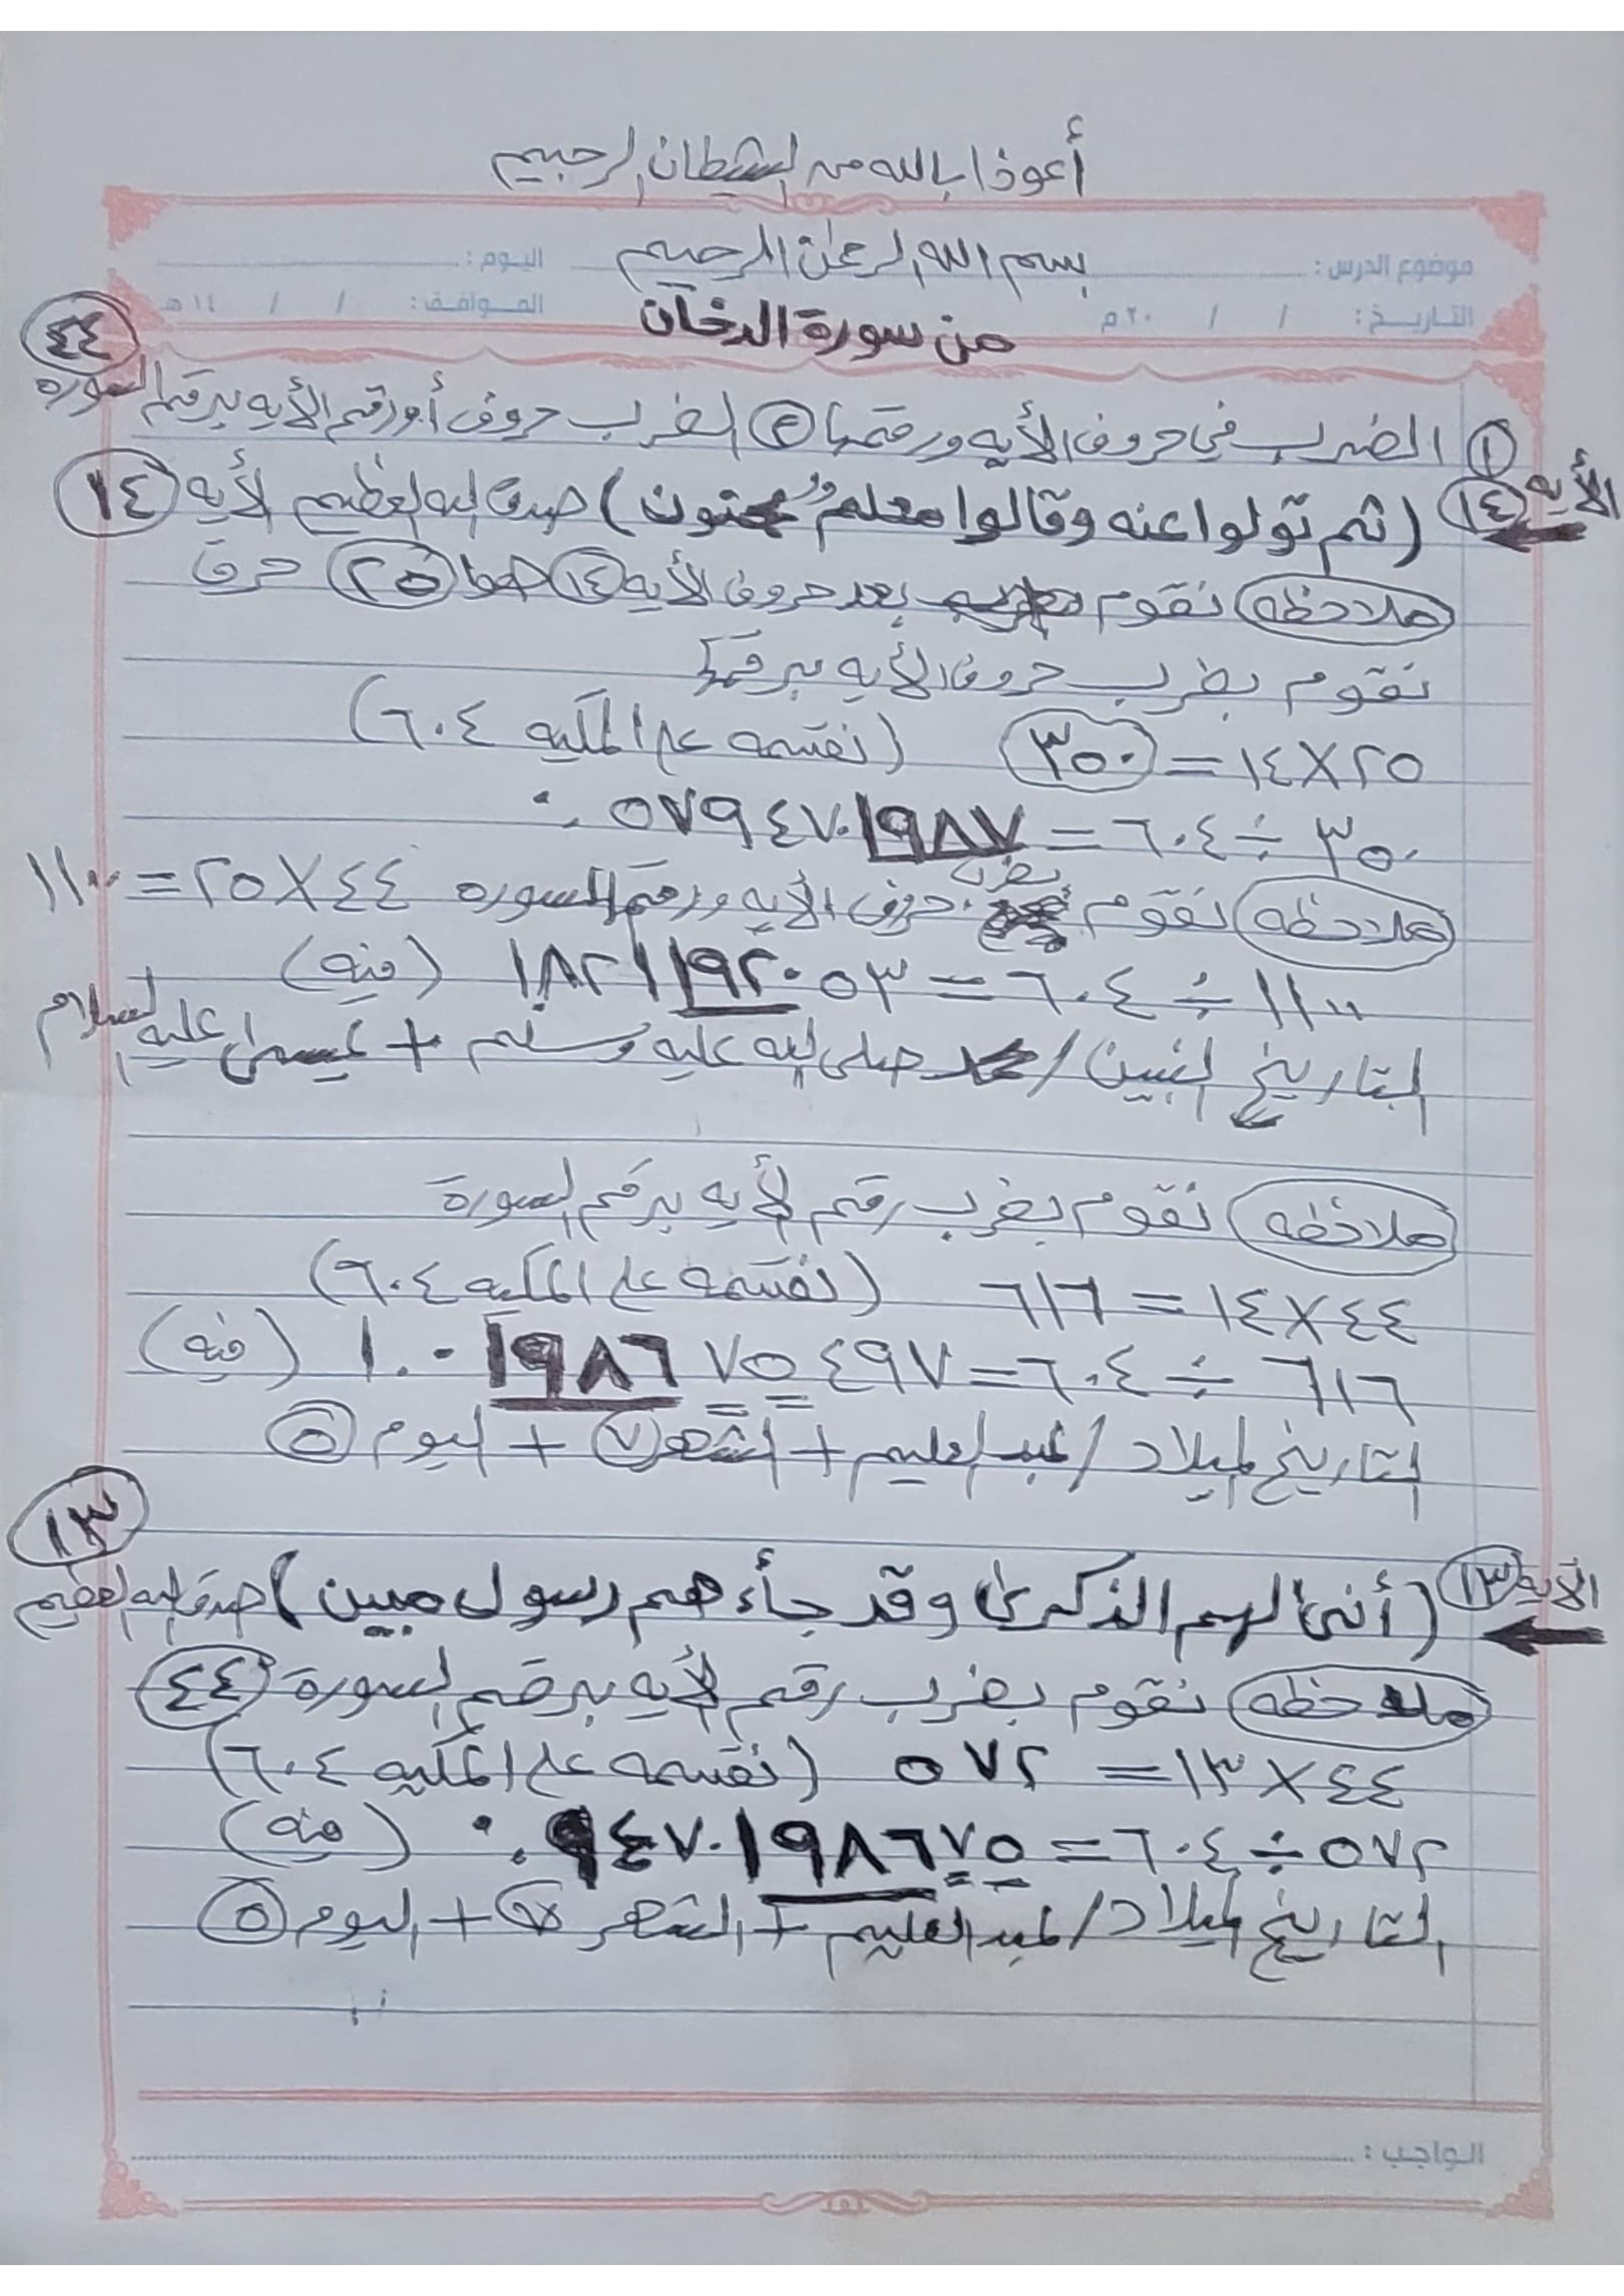 أعوذ بالله من الشيطان الرجيم
بسم الله الرحمن الرحيم
موضوع الدرس : اليوم :
التاريخ : / / ٢٠م الموافق : / / ١٤هـ
من سورة الدخان
٤٤
١ الضرب في حروف الأيه ورقمها ٢ الضرب حروف أورقم الأيه برقم السوره
الأيه ١٤ (ثم تولوا عنه وقالوا معلم مجنون) صدق الله العظيم لأيه ١٤
ملاحظه نقوم بعد حروف الأيه ١٤ ٢٥ حرف
نقوم بضرب حروف الأيه برقمها
٢٥ × ١٤ = ٣٥٠ (نقسمه على المكيه ٦٠٤)
٣٥٠ ÷ ٦٠٤ = ٠.٥٧٩٤٧٠١٩٨٧
ملاحظه نقوم بضرب حروف الأيه ورقم السوره ٤٤ × ٢٥ = ١١٠٠
١١٠٠ ÷ ٦٠٤ = ١.٨٢١١٩٢٠٥٣ (منه)
التاريخ / محمد صلى الله عليه وسلم + عيسى عليه السلام
ملاحظه نقوم بضرب رقم لأيه برقم السورة
٤٤ × ١٤ = ٦١٦ (نقسمه على المكيه ٦٠٤)
٦١٦ ÷ ٦٠٤ = ١.٠١٩٨٦٧٥٤٩٧ (منه)
التاريخ لميلاد / عبد العليم + الشهر ٧ + اليوم ٥
١٣
الأيه ١٣ (أنى لهم الذكرى وقد جأءهم رسول مبين) صدق الله العظيم
ملاحظه نقوم بضرب رقم لأيه برقم السورة ٤٤
٤٤ × ١٣ = ٥٧٢ (نقسمه على المكيه ٦٠٤)
٥٧٢ ÷ ٦٠٤ = ٠.٩٤٧٠١٩٨٦٧٥ (منه)
التاريخ لميلاد / عبد العليم + الشهر ٧ + اليوم ٥
الواجب :